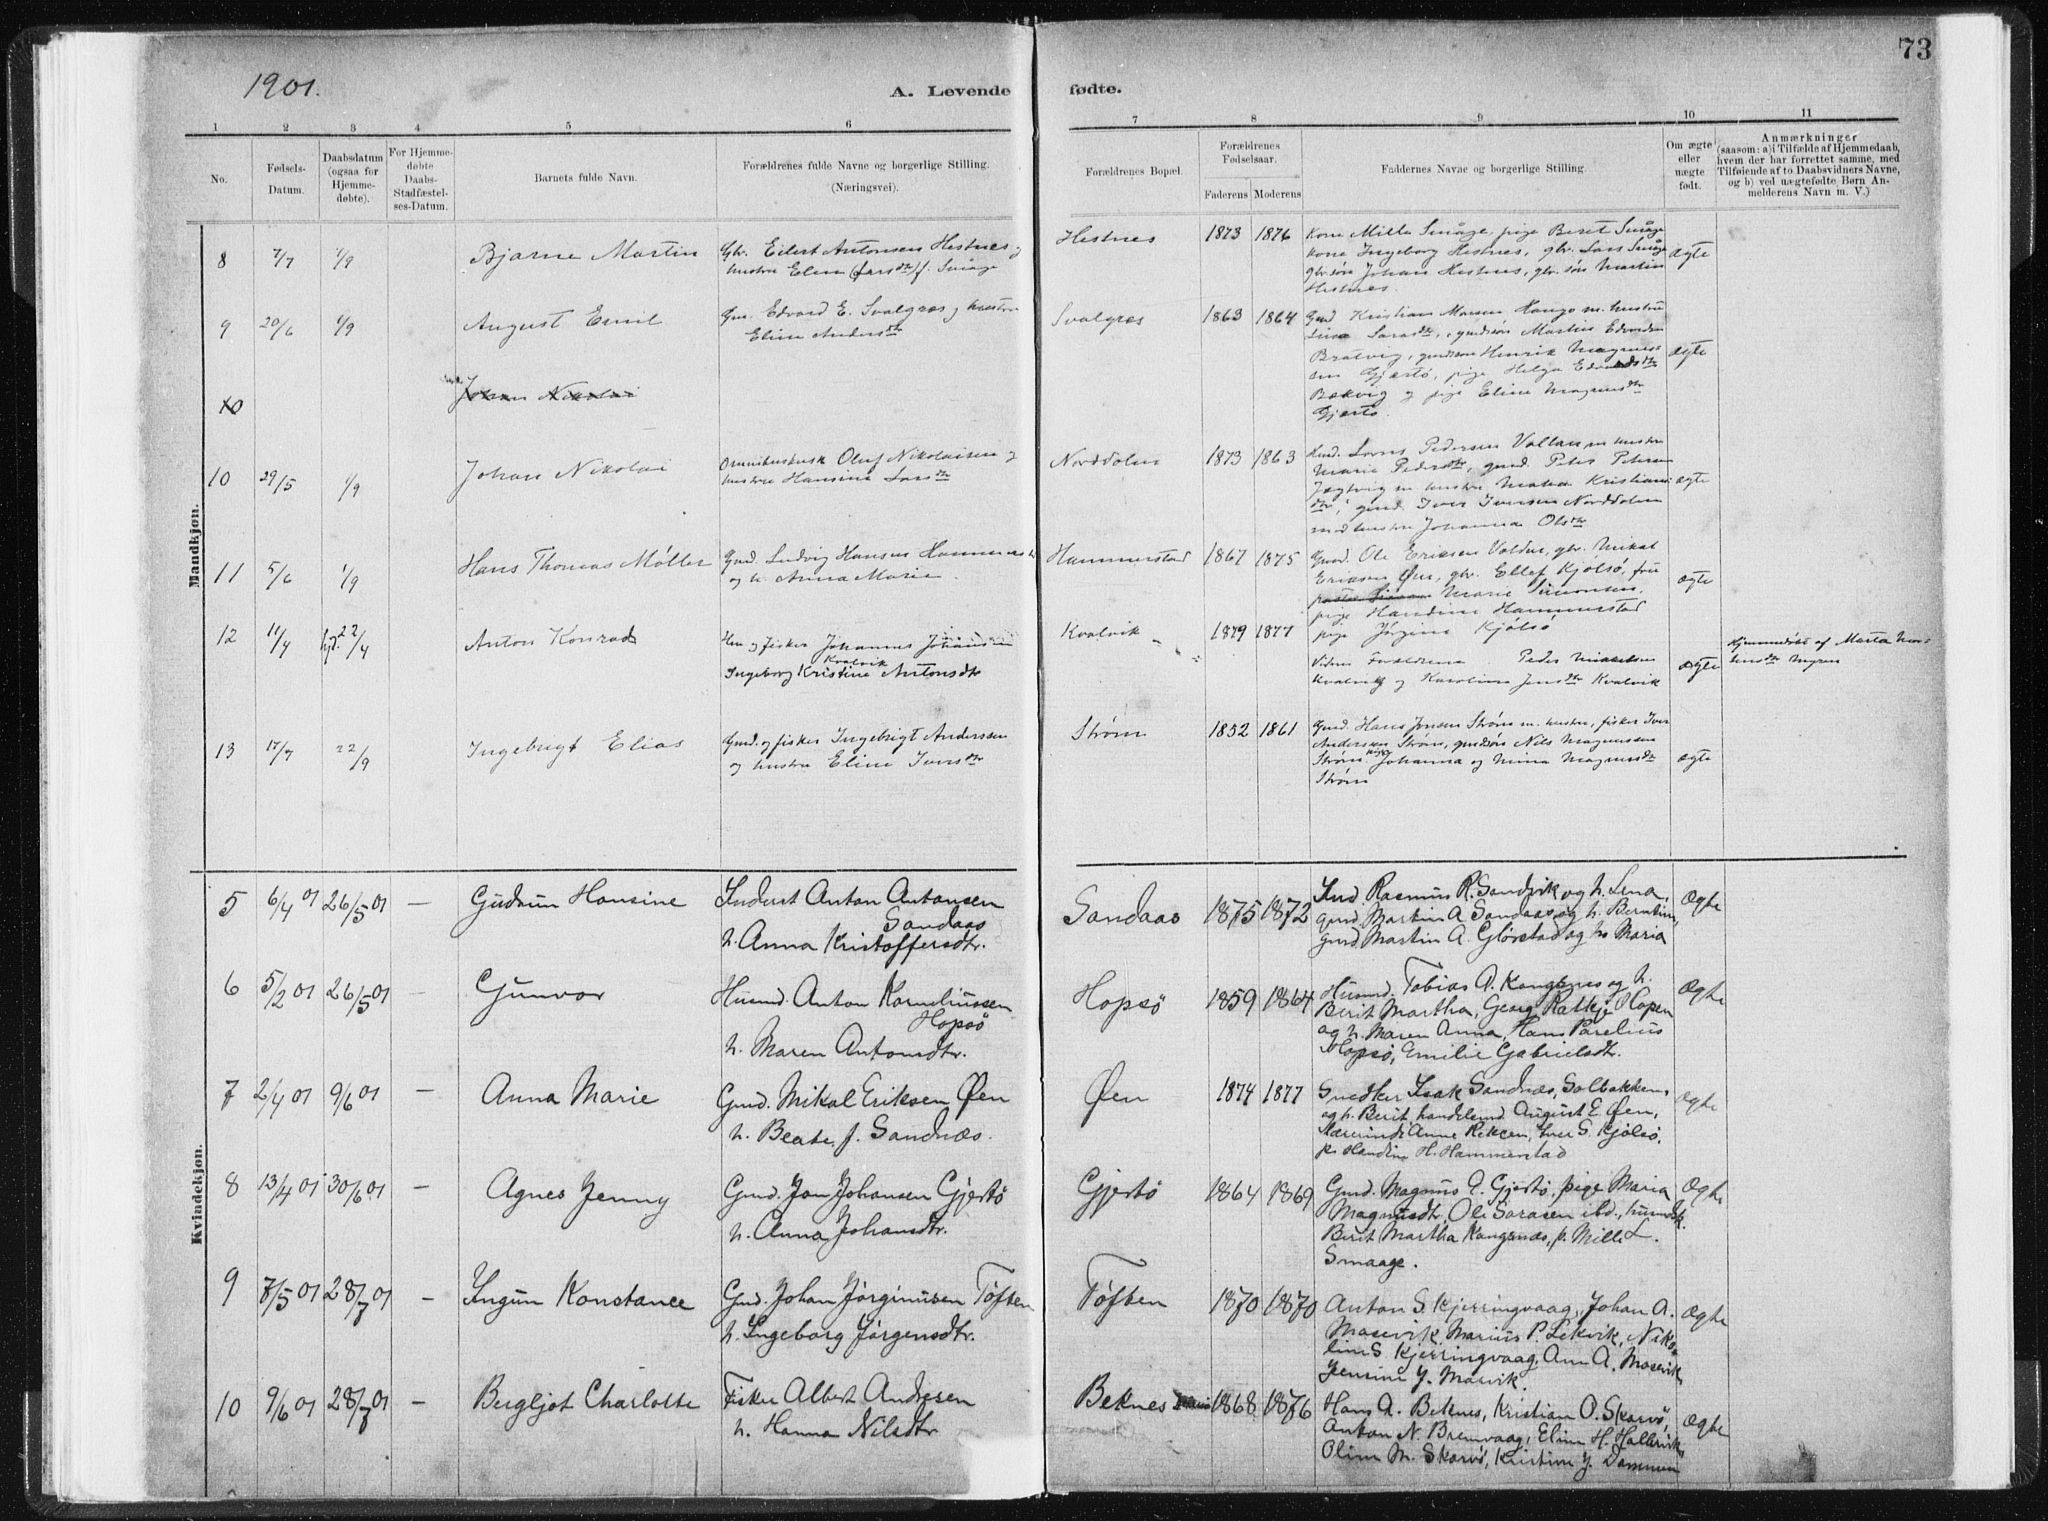 73
1901.
A. Levende fødte.
1 2 3 4 5 6 7 8 9 10 11
No.
Fødsels-
Datum.
Daabsdatum
(ogsaa for
Hjemme-
døbte).
For Hjemme-
døbte
Daabs-
Stadfæstel-
ses-Datum.
Barnets fulde Navn.
Forældrenes fulde Navne og borgerlige Stilling.
(Næringsvei).
Forældrenes Bopæl.
Forældrenes
Fødselsaar.
Faderens Moderens
Faddernes Navne og borgerlige Stilling.
Om ægte
eller
uægte
født.
Anmærkninger
(saasom: a) i Tilfælde af Hjemmedaab,
hvem der har forrettet samme, med
Tilføiende af to Daabsvidners Navne,
og b) ved uægtefødte Børn An-
melderens Navn m. V.)
Mandkjøn.
8 7/7 1/9 Bjarne Martin
Gbr. Eilert Antonsen Hestnes og
hustru Eline (Larsdtr) f. Småge
Hestnes 1873 1876
Kone Mille Småge, pige Beret Småge
kone Ingeborg Hestnes, gbr. Lars Småge
gbr. søn Johan Hestnes, gbr. søn Martin
Hestnes.
ægte
9 20/6 1/9 August Emil
Gm. Edvard E. Svalgres og hustru
Eline Andersdtr
Svalgres 1863 1864
Gmd Kristian Hango m. hustru
Bratvig, gmdsøn Henrik Magnus-
sen Gjærtø, pige Helga Edvardsdtr
Bækvig og pige Eline Magnusdtr
Gjærtø.
ægte
10 Johan Nikolai
10 29/5 1/9 Johan Nikolai
Oluf Nikolaisen og
hustru Hansine Larsdtr
Norddalen 1873 1863
Pedersen Vollan m hustru
Marie Pedersdtr, gmd. Peter Petersen
Jægtvig m hustru Kristians-
dtr, gmd. Iver Iversen Norddalen
med hustru Johanna Olsdtr
ægte
11 5/6 1/9 Hans Thomas Møller
Gmd. Ludvig Hansen Hammerstad
og h. Anna Marie.
Hammerstad 1867 1875
Gmd. Ole Eriksen Valder, gbr. Mikal
Eriksen Øen, gbr. Ellef Kjølsø, fru
Marie Simonsen,
pige Handine Hammerstad
pige Jørgine Kjølsø
ægte
12 11/4 hjd. 22/4 Anton Konrad
og fisker Johannes Johansen
Kvalvik
Ingeborg Kristine Antonsdtr
Kvalvik 1879 1877
Vidner Forældrene Peder Mikkelsen
Kvalvig og Karoline Jensdtr Kvalvik
ægte
Hjemmedøbt af Marta
Myren
13 17/7 22/9 Ingebrigt Elias
Gmd. og fisker Ingebrigt Anderssen
og hustru Eline Iversdtr
Strøm 1852 1861
Gmd. Hans Jonsen Strøm m. hustru, fisker Iver
Anderssen Strøm, gmdsøn Nils Magnussen
Strøm, piger Johanna og Mina Magnusdtr
Strøm
ægte
Kvindekjøn.
5 6/4 01 26/5 01 — Gudrun Hansine
Inderst Anton Antonsen
Sandaas
h. Anna Kristoffersdtr.
Sandaas 1875 1872
Ind. Rasmus R. Sandvik og h. Lena,
gmd. Martin A. Sandaas og h. Berntine,
gmd. Martin A. Glørstad og h. Maria
Ægte
6 5/2 01 26/5 01 — Gunvor
Husmd. Anton Korneliussen
Hopsö
h. Maren Antonsdtr.
Hopsö 1859 1864
Husmd. Tobias A. Kongsnes og h.
Berit Martha, Georg Ratkje Hopen
og h. Maren Anna, Hans Parelius
Hopsø, Emilie Gabrielsdtr.
Ægte
7 2/4 01 9/6 01 — Anna Marie
Gmd. Mikal Eriksen Øen
h. Beate, f. Sandnæs.
Øen 1874 1877
Snedker Isak Sandnæs, Solbakken,
og h. Berit, handelsmd August E. Øen,
Anne Reksen, Iver S. Kjølsø,
p. Handine H. Hammerstad
Ægte
8 13/4 01 30/6 01 — Agnes Jenny
Gmd. Jon Johansen Gjestø
h. Anna Johansdtr.
Gjertö 1864 1869
Gmd. Magnus A. Gjertö, pige Maria
Magnusdtr, Ole Sarasen ibd., husmdsk.
Berit Martha Kongsnæs, p. Mille L.
Smaage.
Ægte
9 7/5 01 28/7 01 — Ingun Konstance
Gmd. Johan Jørginusen Tøften
h. Ingeborg Jørgensdtr.
Tøften 1870 1870
Anton S. Kjerringvaag, Johan A.
Masevik, Marius P. Lekvik, Niko-
line S. Kjerringvaag, Ane A. Masevik
Jensine J. Masvik.
Ægte
10 9/6 01 28/7 01 — Bergljot Charlotte
Fisker Albert Andresen
h. Hanna Nilsdtr
Beknes 1868 1876
Hans A. Beknes, Kristian O. Skarsö,
Anton N. Bremvaag, Eline H. Hallarvik,
Oline M. Skarsö, Kristine J. Dammen
Ægte